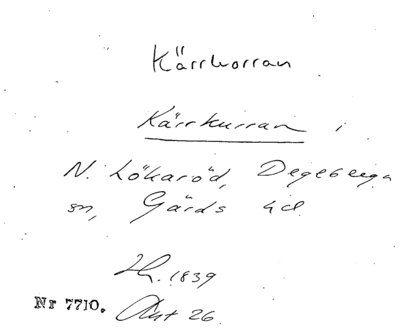 Kärrhorran
Kärrkurran i
N. Lökaröd, Degeberga
sn, Gärds hd.
1839
Nr 7710. Akt 26.